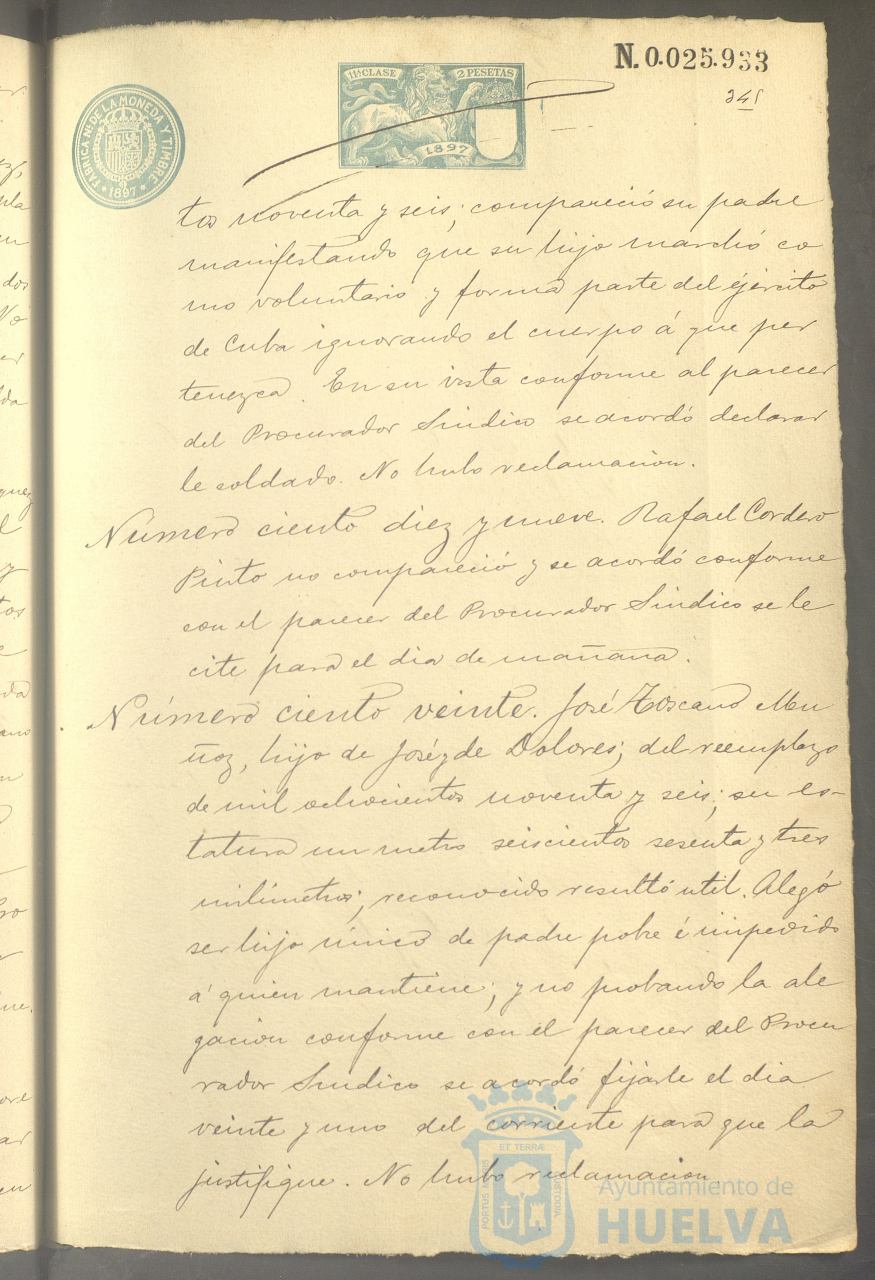 N. 0.025.933
241
11ª CLASE 2 PESETAS
1897
FABRICA Nal. DE LA MONEDA Y TIMBRE
1897
tos noventa y seis; compareció su padre
manifestando que su hijo marchó co
mo voluntario y forma parte del ejército
de Cuba ignorando el cuerpo á que per
tenezca. En su vista conforme al parecer
del Procurador Sindico se acordó declarar
le soldado. No hubo reclamacion.
Número ciento diez y nueve. Rafael Cordero
Pinto no compareció y se acordó conforme
con el parecer del Procurador Sindico se le
cite para el dia de mañana.
Número ciento veinte. José Toscano Mu
ñoz, hijo de José y de Dolores; del reemplazo
de mil ochocientos noventa y seis; su es-
tatura un metro seiscientos sesenta y tres
milímetros; reconocido resultó util. Alegó
ser hijo único de padre pobre é impedido
á quien mantiene; y no probando la ale
gacion conforme con el parecer del Procu
rador Sindico se acordó fijarle el dia
veinte y uno del corriente para que la
justifique. No hubo reclamacion.
ET TERRÆ
PORTUS MARIS
CUSTODIA
Ayuntamiento de
HUELVA